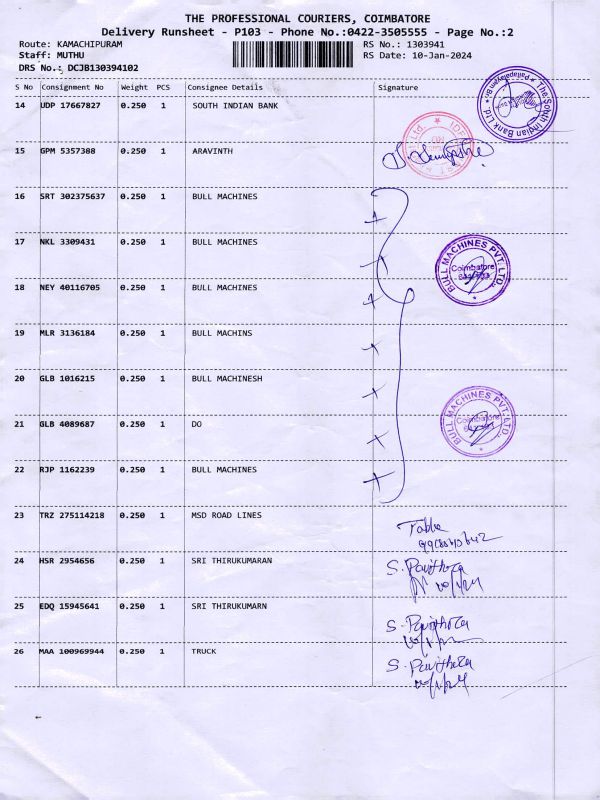 THE PROFESSIONAL COURIERS, COIMBATORE
Delivery Runsheet - P103 - Phone No.:0422-3505555 - Page No.:2
Route: KAMACHIPURAM RS No.: 1303941
Staff: MUTHU RS Date: 10-Jan-2024
DRS No.: DCJB130394102
S No Consignment No Weight PCS Consignee Details Signature
14 UDP 17667827 0.250 1 SOUTH INDIAN BANK
The South Indian Bank Ltd.
15 GPM 5357388 0.250 1 ARAVINTH
16 SRT 302375637 0.250 1 BULL MACHINES
17 NKL 3309431 0.250 1 BULL MACHINES
BULL MACHINES PVT. LTD.
Coimbatore
18 NEY 40116705 0.250 1 BULL MACHINES
19 MLR 3136184 0.250 1 BULL MACHINS
20 GLB 1016215 0.250 1 BULL MACHINESH
21 GLB 4089687 0.250 1 DO
BULL MACHINES PVT. LTD.
Coimbatore
22 RJP 1162239 0.250 1 BULL MACHINES
23 TRZ 275114218 0.250 1 MSD ROAD LINES
24 HSR 2954656 0.250 1 SRI THIRUKUMARAN S. Pavithra
25 EDQ 15945641 0.250 1 SRI THIRUKUMARN S. Pavithra
26 MAA 100969944 0.250 1 TRUCK S. Pavithra